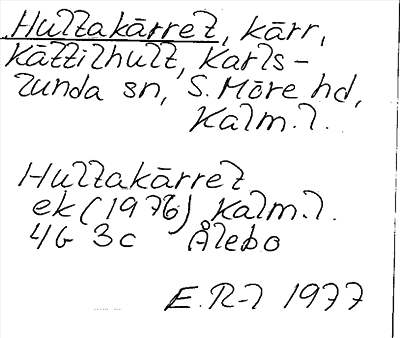 Hultakärret, kärr,
Kättilhult, Karls-
lunda sn, S. Möre hd,
Kalm. l.
Hultakärret
ek (1976) Kalm. l.
4G 3c Ålebo
E. R-l 1977